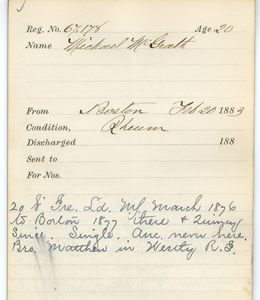 Reg. No. 67,178 Age 20
Name Michael McGrath
From Boston Feb 20 1883
Condition, Rheum
Discharged 188
Sent to
For Nos.
20 Y. Ire. L'd. NY March 1876
to Boston 1877 there & Quincy
since. Single. Anc. never here.
Bro. Matthew in Westly R.I.